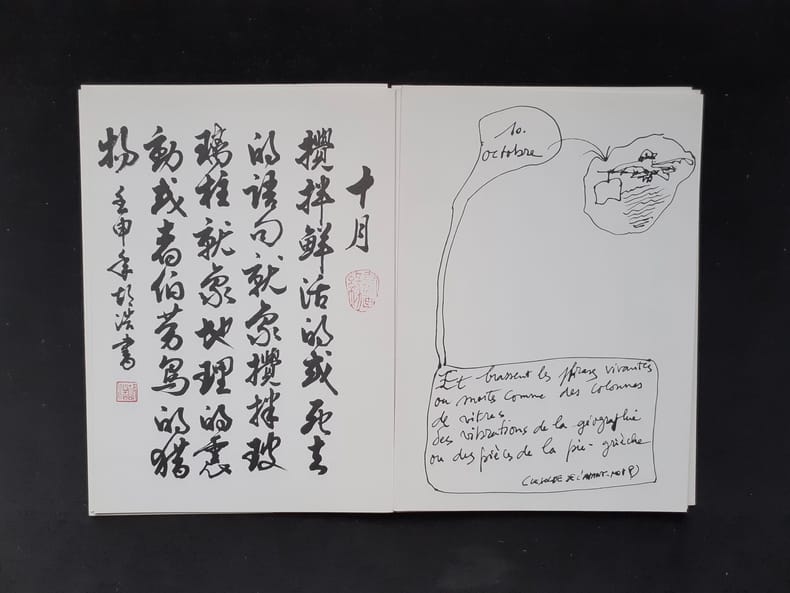 十月
攪拌鮮活的或死去
的语句就象攪拌玻
璃柱就象地理的震
動或者伯劳鸟的猎
物
壬申年胡浩書
10.
octobre
Et brassent les phrases vivantes
ou mortes comme des colonnes
de vitres
des vibrations de la géographie
ou des pièces de la pie-grièche
DE L'AVANT-